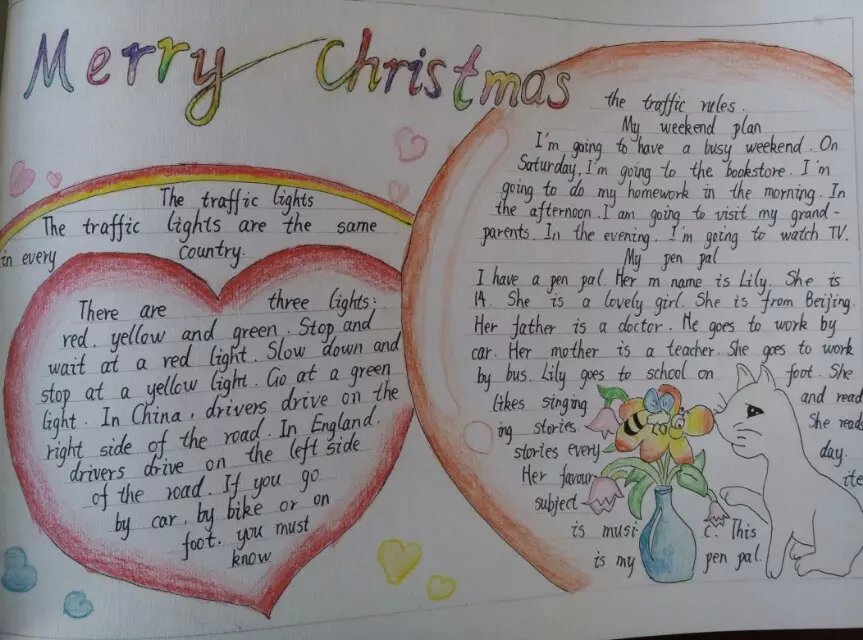 Merry Christmas
The traffic lights
The traffic lights are the same
in every country.
There are three lights:
red, yellow and green. Stop and
wait at a red light. Slow down and
stop at a yellow light. Go at a green
light. In China, drivers drive on the
right side of the road. In England,
drivers drive on the left side
of the road. If you go
by car, by bike or on
foot, you must
know
the traffic rules.
My weekend plan
I'm going to have a busy weekend. On
Saturday, I'm going to the bookstore. I'm
going to do my homework in the morning. In
the afternoon, I am going to visit my grand-
parents. In the evening, I'm going to watch TV.
My pen pal
I have a pen pal. Her m name is Lily. She is
14. She is a lovely girl. She is from Beijing.
Her father is a doctor. He goes to work by
car. Her mother is a teacher. She goes to work
by bus. Lily goes to school on foot. She
likes singing and read
ing stories. She reads
stories every day.
Her favour ite
subject
is musi c. This
is my pen pal.